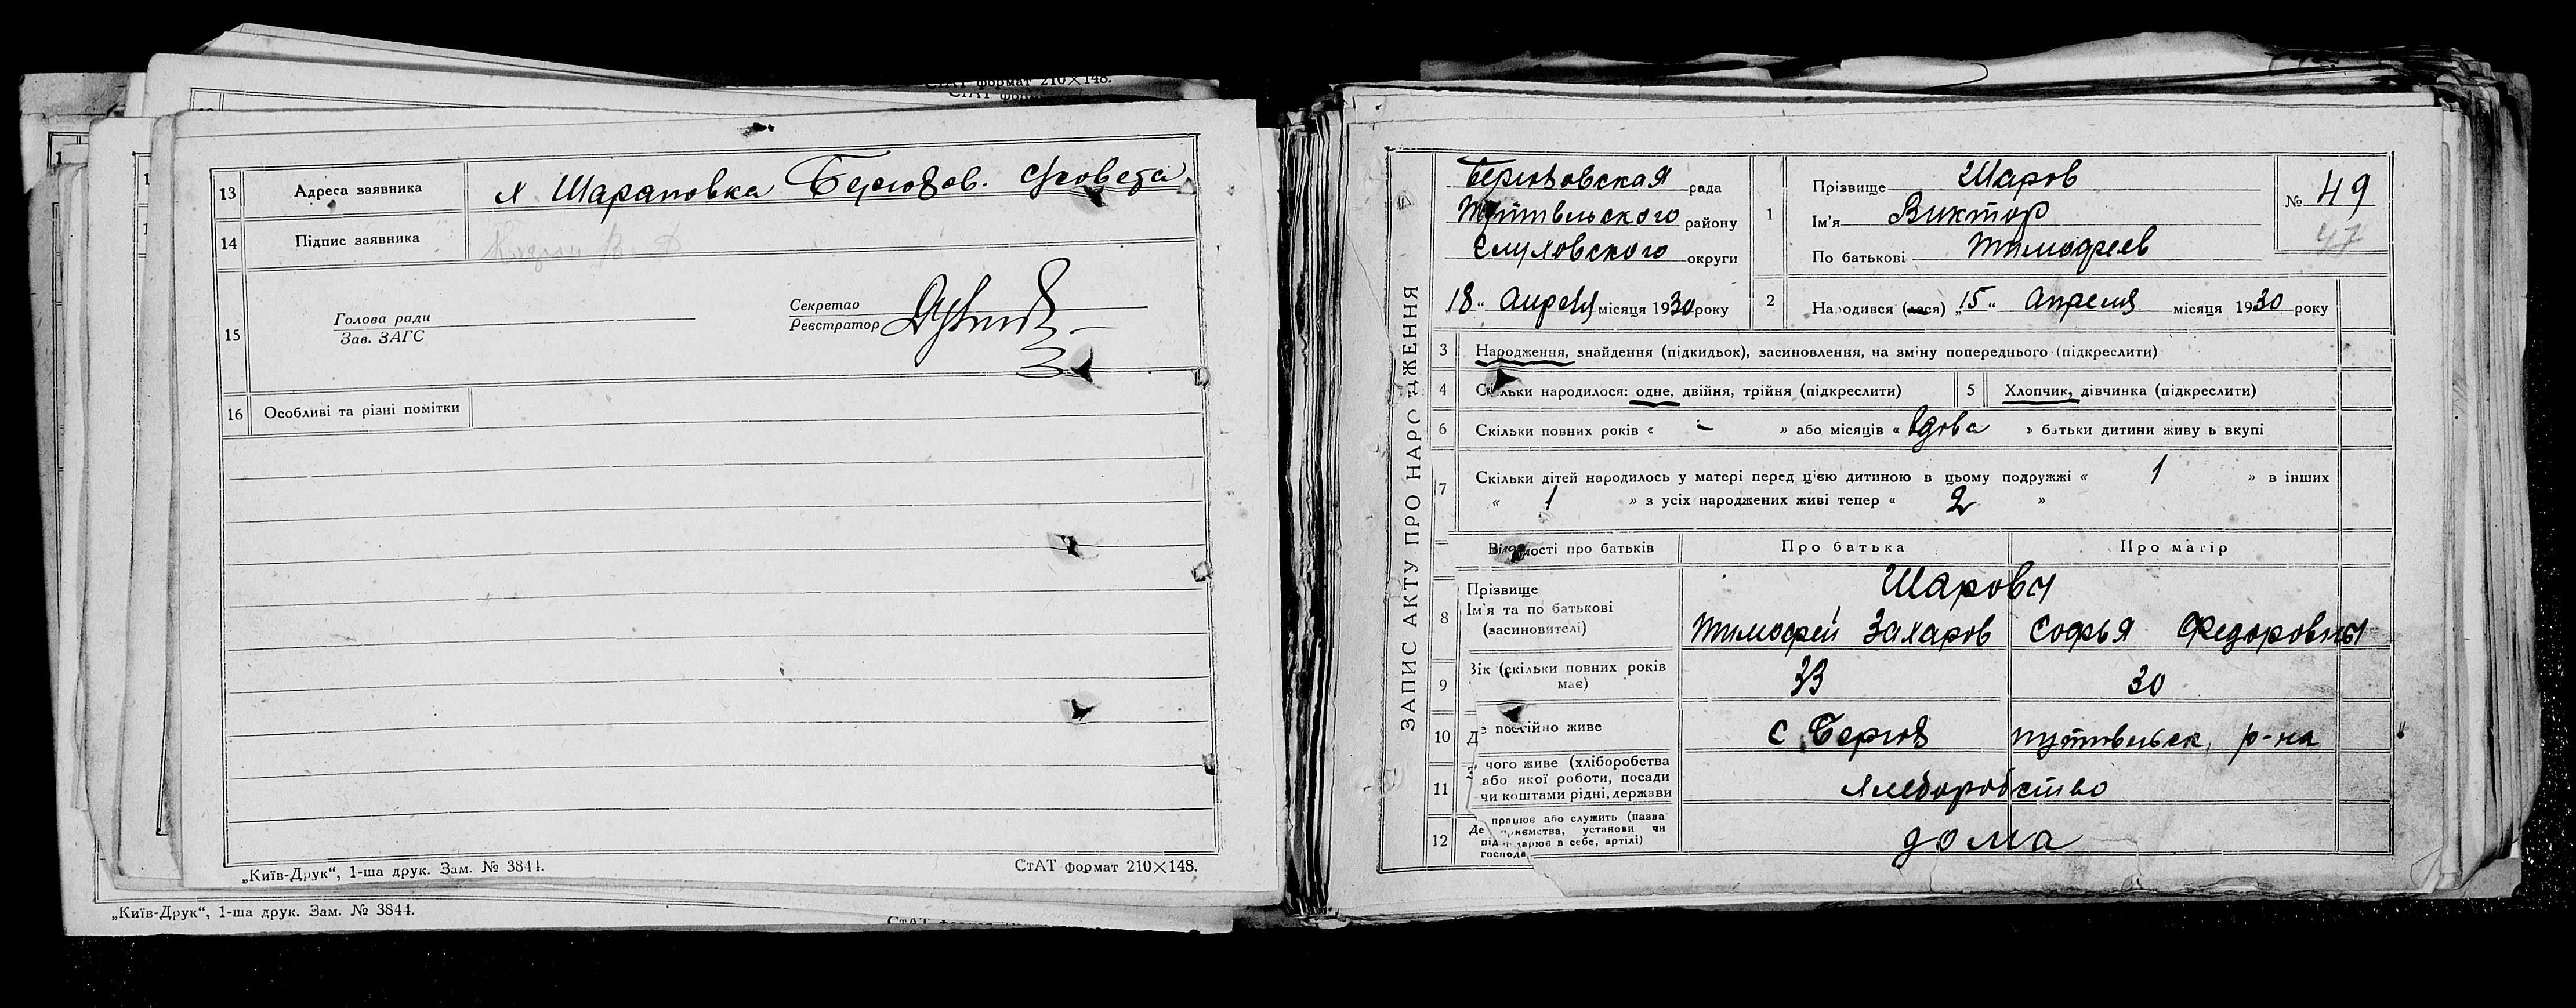 СтАТ формат 210×148.
13 Адреса заявника х Шарановка Берюзов. С/совета
14 Підпис заявника
15 Голова ради
Зав. ЗАГС
Секретар
Реєстратор
16 Особливі та різні помітки
„Київ-Друк“, 1-ша друк. Зам. № 3844. СтАТ формат 210×148.
„Київ-Друк“, 1-ша друк. Зам. № 3844.
ЗАПИС АКТУ ПРО НАРОДЖЕННЯ
Берюзовская рада
Путивльского району
Глуховского округи
18 „ Апреля місяця 1930 року
1 Прізвище Шаров
Ім'я Виктор
По батькові Тимофеев
№ 49
47
2 Народився (лася) „15“ Апреля місяця 1930 року
3 Народження, знайдення (підкидьок), засиновлення, на зміну попереднього (підкреслити)
4 Скільки народилося: одне, двійня, трійня (підкреслити) 5 Хлопчик, дівчинка (підкреслити)
6 Скільки повних років « - » або місяців « вдова » батьки дитини живуть вкупі
7 Скільки дітей народилось у матері перед цією дитиною в цьому подружжі « 1 » в інших
« 1 » з усіх народжених живі тепер « 2 »
Відомості про батьків Про батька Про матір
8 Прізвище
Ім'я та по батькові
(засиновителі)
Шаровы
Тимофей Захаров Софья Федоровны
9 Вік (скільки повних років
має) 33 30
10 Де постійно живе с Берюз путивльск. р-на
11 З чого живе (хліборобства
або якої роботи, посади
чи коштами рідні, держави
хлеборобство
12 Де працює або служить (назва
підприємства, установи чи
господарює в себе, артілі)
дома